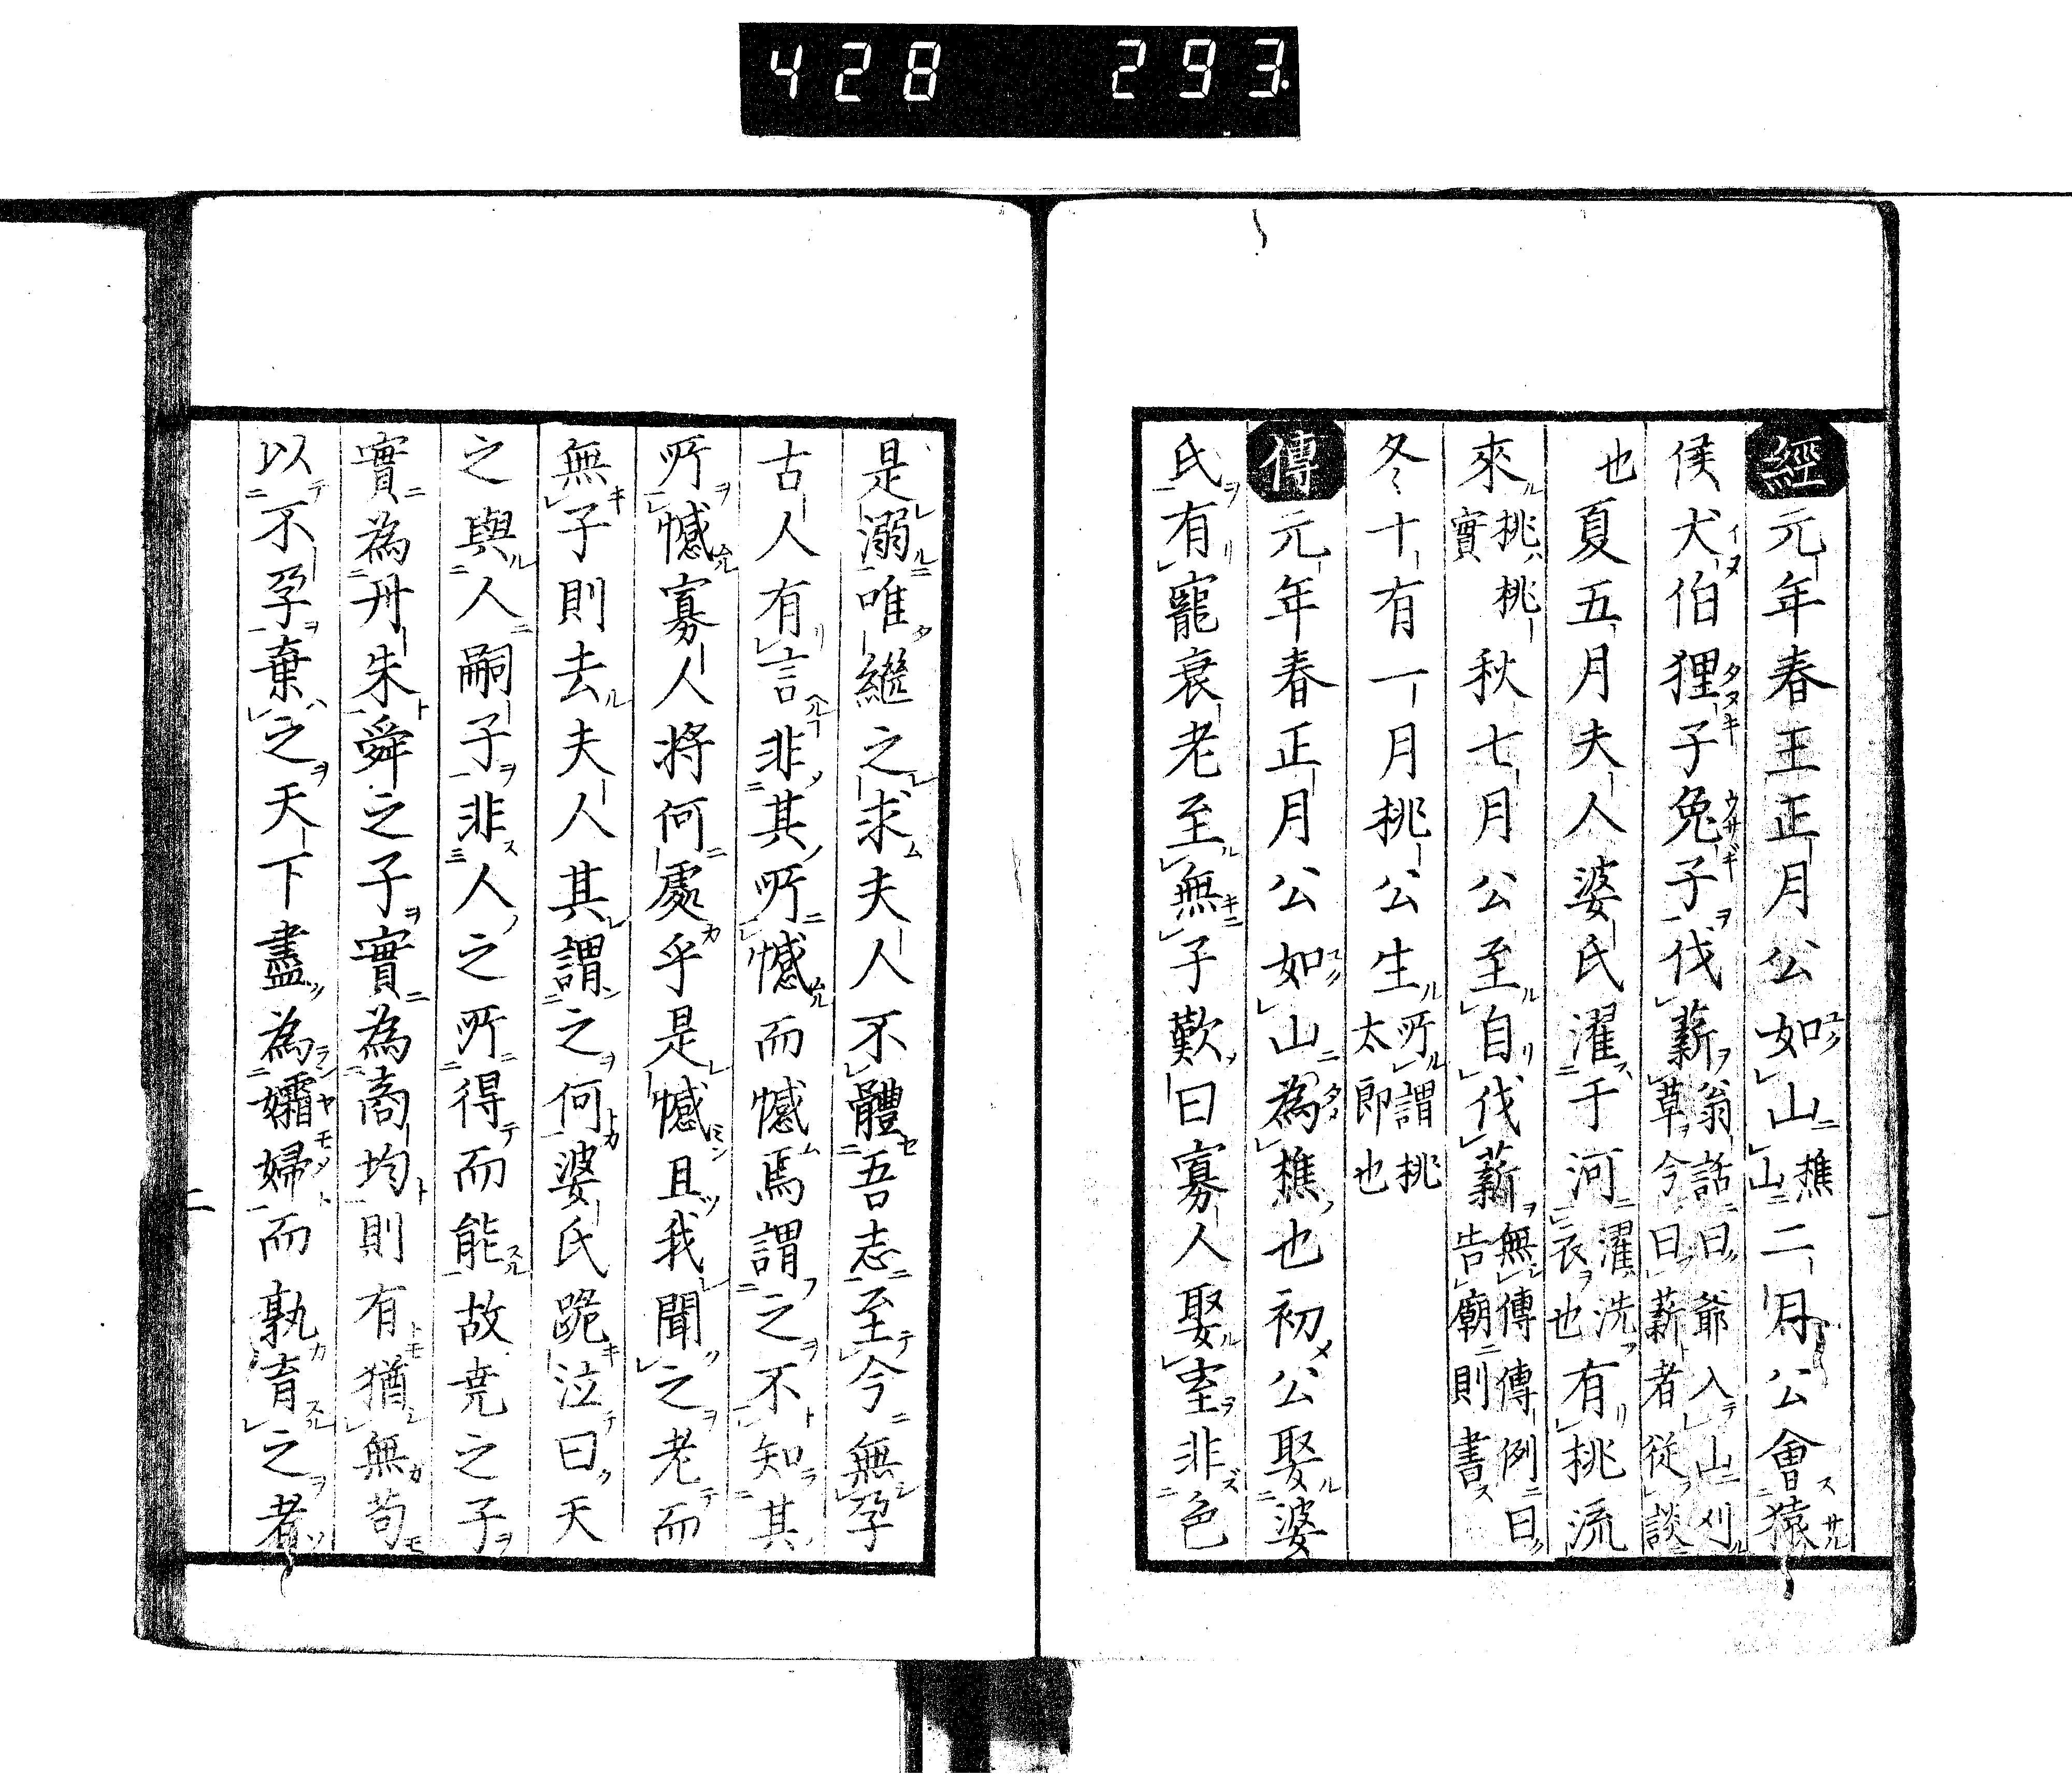 428 293
經元年春王正月公如山樵山二月公會猿
侯犬伯狸子兔子伐薪翁話曰爺入山刈草今曰薪者從談
也夏五月夫人婆氏濯于河濯洗衣也有桃流
來桃桃實秋七月公至自伐薪無傳傳例曰告廟則書
冬十有一月桃公生所謂桃太郎也
傳元年春正月公如山為樵也初公娶婆
氏有寵衰老至無子歎曰寡人娶室非色
是溺唯繼之求夫人不體吾志至今無孕
古人有言非其所憾而憾焉謂之不知其
所憾寡人將何處乎是憾且我聞之老而
無子則去夫人其謂之何婆氏跪泣曰天
之與人嗣子非人之所得而能故堯之子
實為丹朱舜之子實為商均則有猶無苟
以不孕棄之天下盡為孀婦而孰育之者
二